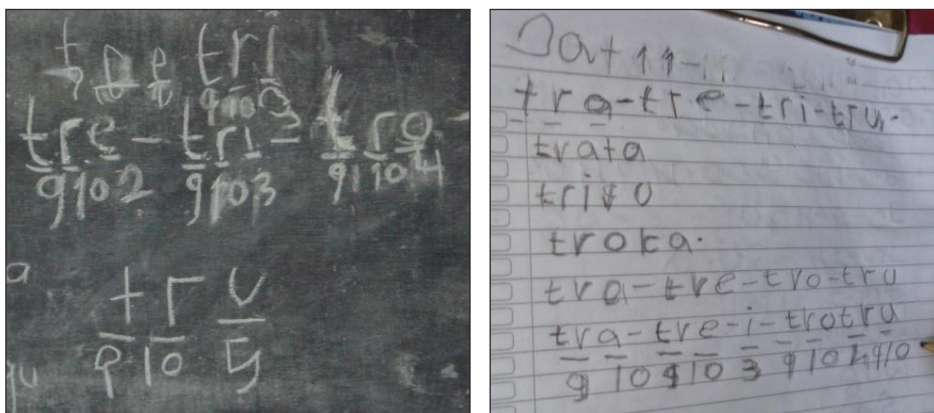 tri
9 10 3
tre - tri - tro
9 10 2 9 10 3 9 10 4
a
t r u
9 10 5
tra-tre-tri-tru.
trata
trito
troka.
tra-tre-tro-tru
tra-tre-i-trotru
9 10 9 10 3 9 10 4 9 10